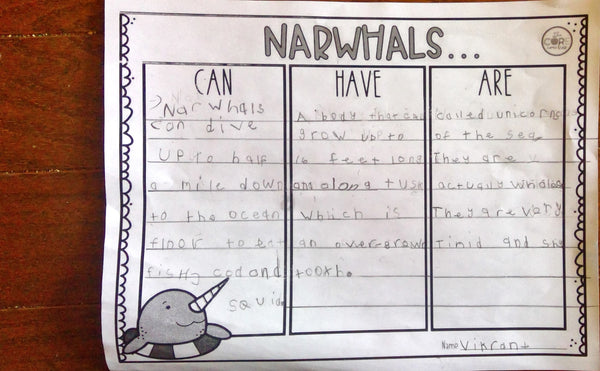 NARWHALS...
CORE
CAN
Narwhals
can dive
UP to half
a mile down
to the ocean
floor to eat
fish, cod and
squid
HAVE
A body that can
grow up to
16 feet long
and along tusk
which is
an overgrown
tooth.
ARE
called unicorns
of the sea
They are
actually whales
They are very
Timid and shy
Name Vikrant